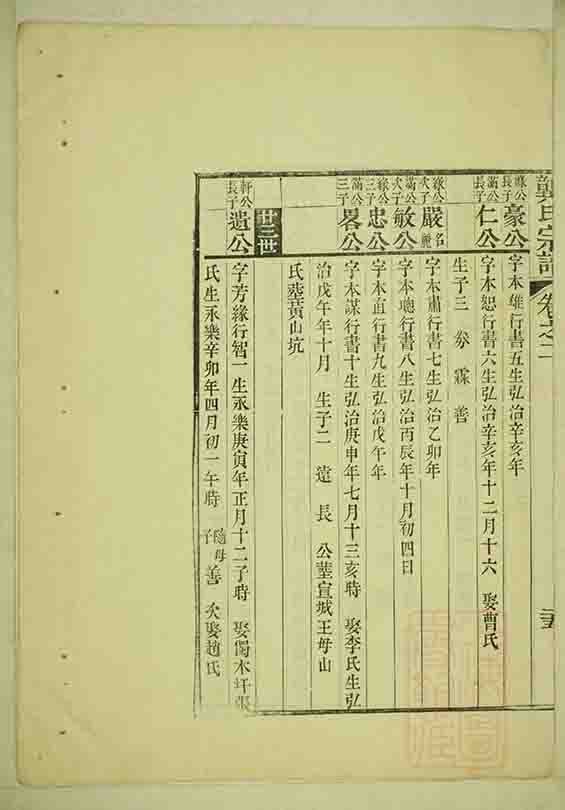 龔氏宗譜 卷之二 二十五
緣公長子 豪公 字本雄行書五生弘治辛亥年
滿公長子 仁公 字本恕行書六生弘治辛亥年十二月十六 娶曹氏
生子三 粉 霖 善
緣公次子 嚴公 名 字本肅行書七生弘治乙卯年
滿公次子 敏公 字本聰行書八生弘治丙辰年十月初四日
緣公三子 忠公 字本直行書九生弘治戊午年
滿公三子 畧公 字本謀行書十生弘治庚申年七月十三亥時 娶李氏生弘
治戊午年十月 生子二 遠 長 公塟宣城王母山
氏塟黃山坑
廿三世
軒公長子 遺公 字芳緣行智一生永樂庚寅年正月十二子時 娶獨木圩張
氏生永樂辛卯年四月初一午時 隨母子 善 次娶趙氏